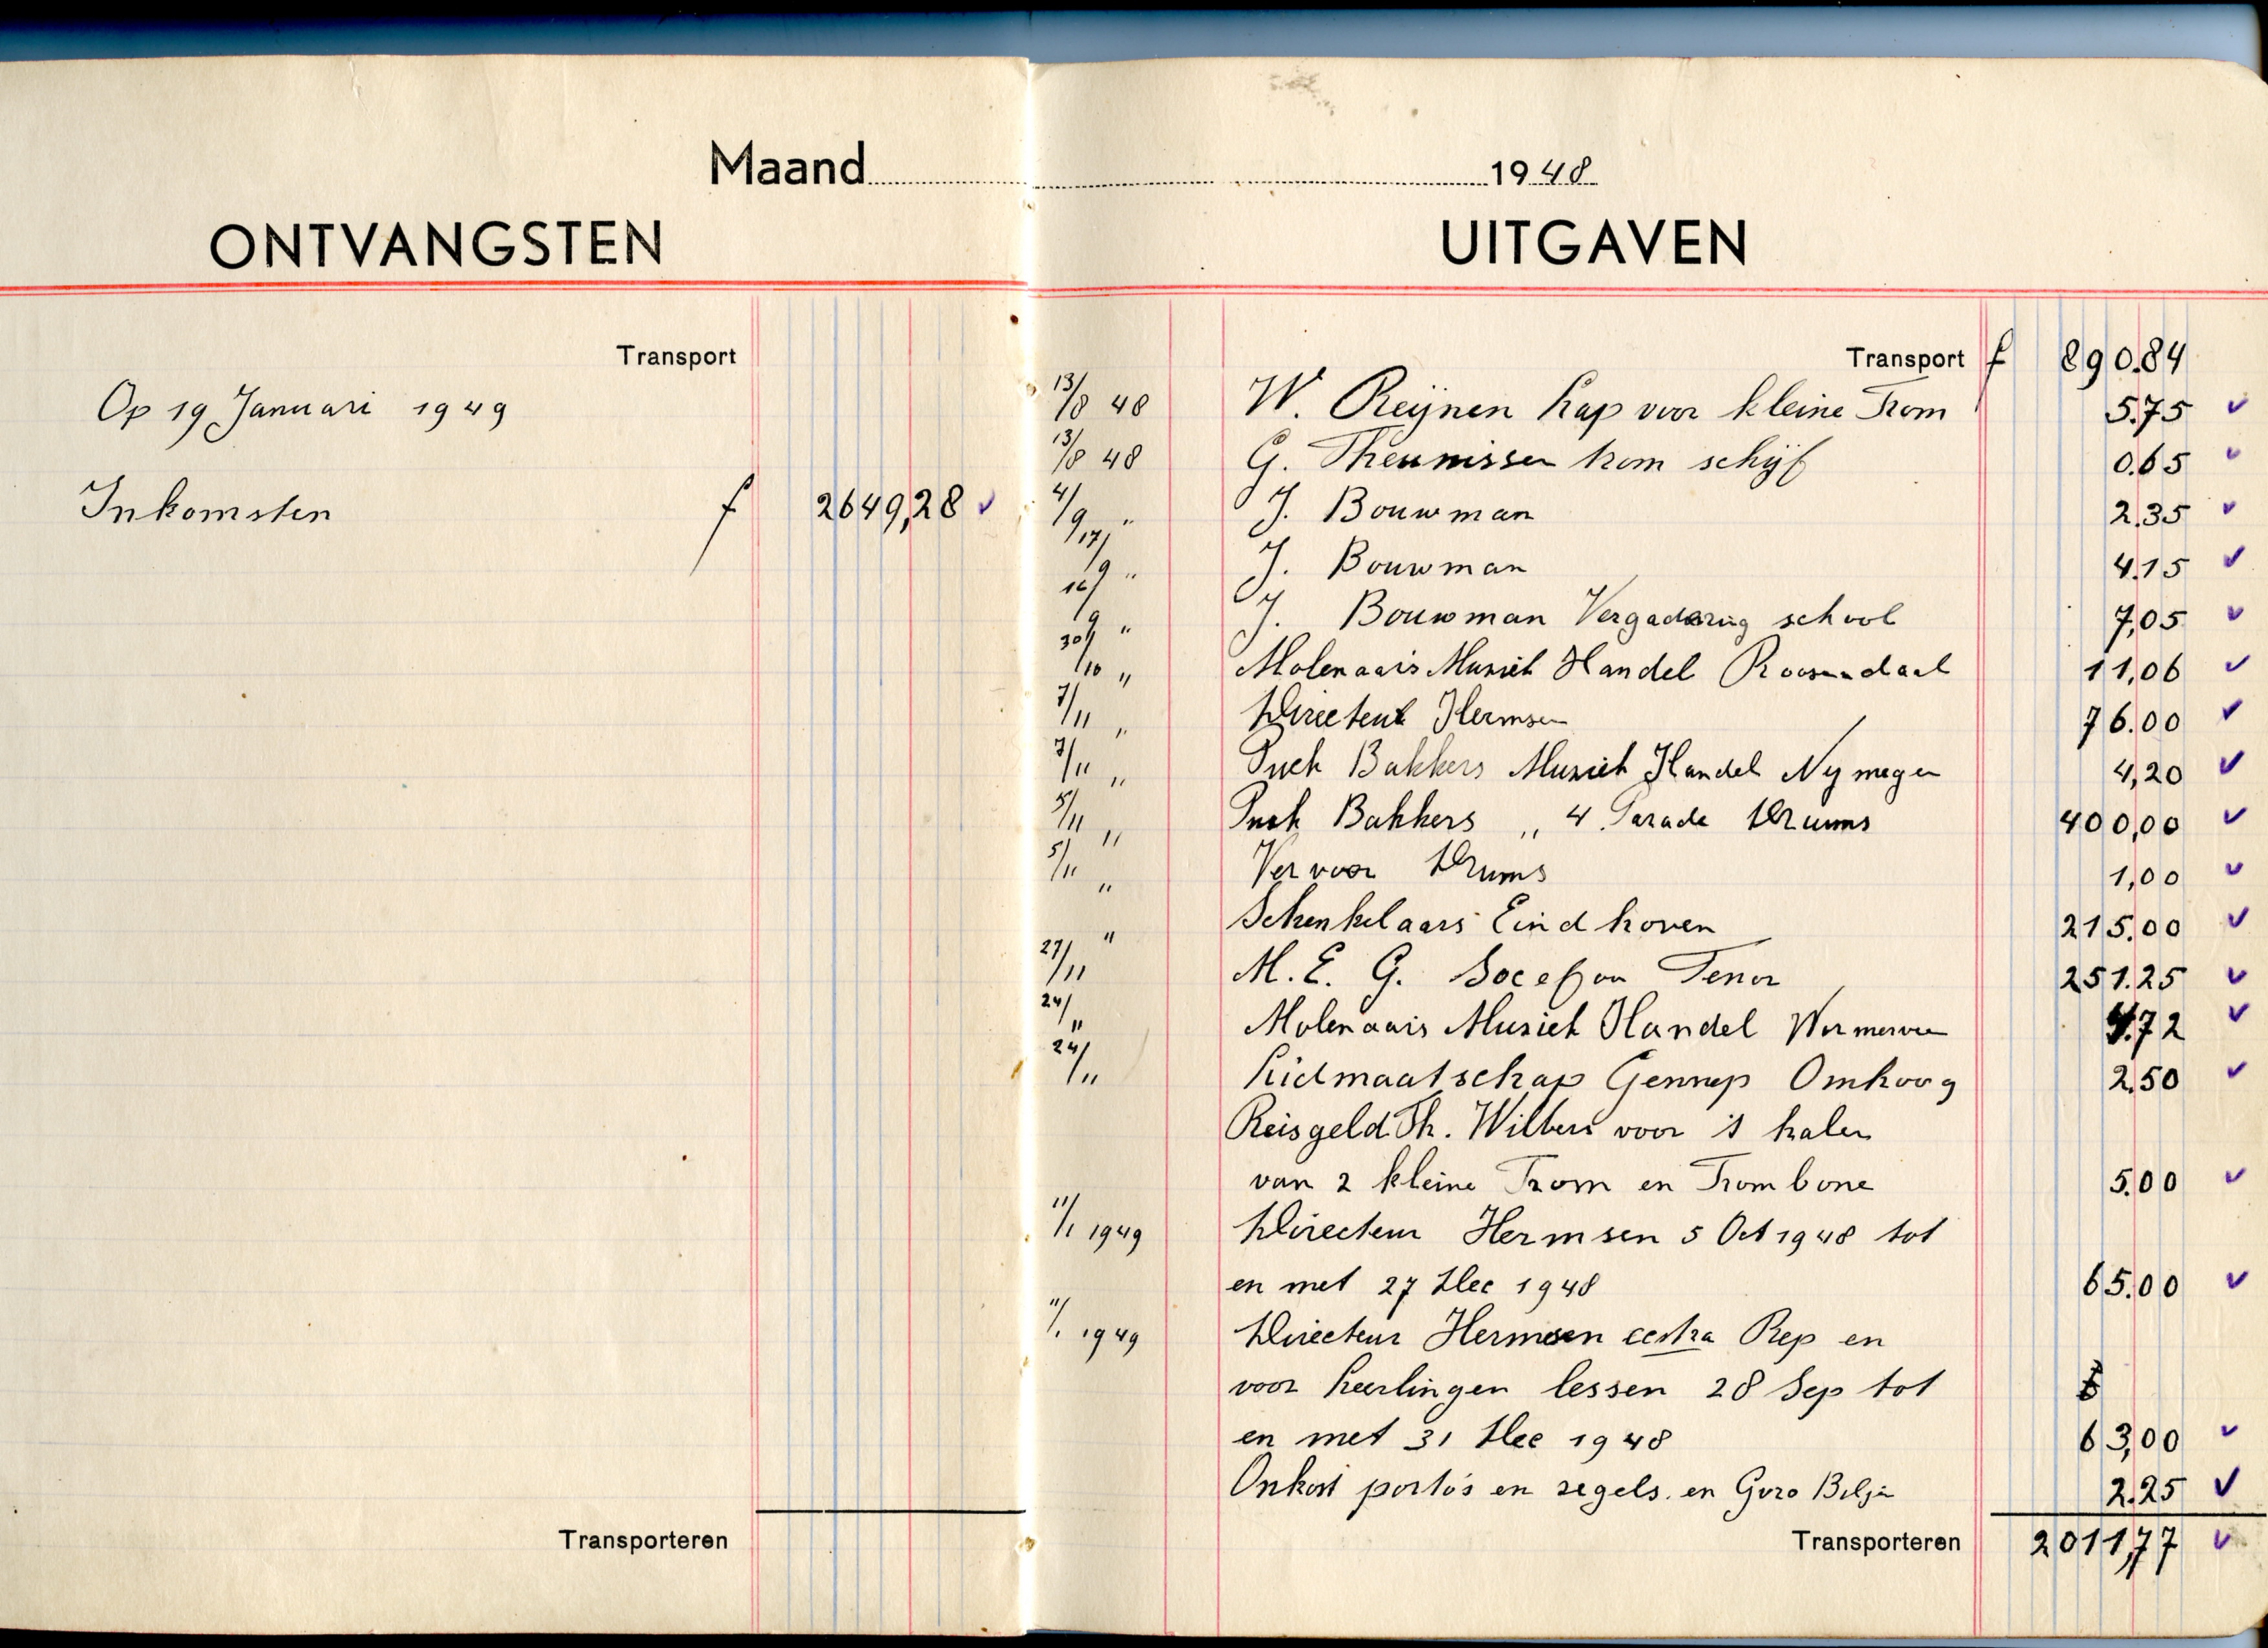 Maand 1948
ONTVANGSTEN
Transport
Op 19 Januari 1949
Inkomsten f 2649,28 ✓
Transporteren
UITGAVEN
Transport f 890.84
13/8 48 W. Reijnen kap voor kleine Trom 5.75 ✓
13/8 48 G. Theunissen trom schijf 0.65 ✓
4/9 " J. Bouwman 2.35 ✓
17/9 " J. Bouwman 4.15 ✓
16/9 " J. Bouwman Vergadering school 7,05 ✓
30/10 " Molenaars Muziek Handel Roosendaal 11,06 ✓
7/11 " Directeur Hermsen 76.00 ✓
7/11 " Bakkers Muziek Handel Nymegen 4,20 ✓
5/11 " Bakkers " 4 Parade Drums 400,00 ✓
5/11 " Ver voor Drums 1,00 ✓
" Schenkelaars Eindhoven 215.00 ✓
27/11 M. E. G. Tenor 251.25 ✓
24/11 Molenaars Muziek Handel 4.72 ✓
24/11 Lidmaatschap Gennep Omhoog 2.50 ✓
Reisgeld Th. Wilbers voor 't halen
van 2 kleine Trom en Trombone 5.00 ✓
11/1 1949 Directeur Hermsen 5 Oct 1948 tot
en met 27 Dec 1948 65.00 ✓
11/1 1949 Directeur Hermsen Rep en
voor Leerlingen lessen 28 Sep tot
en met 31 Dec 1948 63,00 ✓
Onkost porto's en zegels en 2.25 ✓
Transporteren 2011,77 ✓